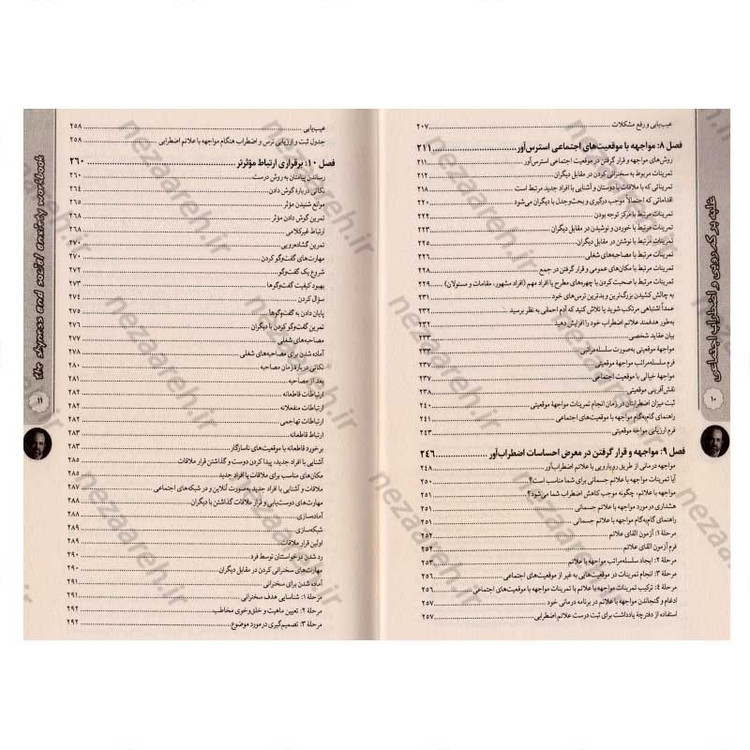 غلبه بر کم‌رویی و اضطراب اجتماعی
۱۰
عیب‌یابی و رفع مشکلات ۲۰۷
فصل ۸: مواجهه با موقعیت‌های اجتماعی استرس‌آور ۲۱۱
روش‌های مواجهه و قرار گرفتن در موقعیت اجتماعی استرس‌آور ۲۱۱
تمرینات مربوط به سخنرانی کردن در مقابل دیگران ۲۱۲
تمریناتی که با ملاقات با دوستان و آشنایی با افراد جدید مرتبط است ۲۱۸
اقداماتی که احتمالاً موجب درگیری و بحث‌وجدل با دیگران می‌شود
تمرینات مرتبط با مرکز توجه بودن
تمرینات مرتبط با خوردن و نوشیدن در مقابل دیگران
تمرینات مرتبط با نوشتن در مقابل دیگران ۲۲۵
تمرینات مرتبط با مصاحبه‌های شغلی
تمرینات مرتبط با مکان‌های عمومی و قرار گرفتن در جمع
تمرینات مرتبط با صحبت کردن با چهره‌های مطرح یا افراد مهم (افراد مشهور، مقامات و مسئولان) ۲۲۹
به چالش کشیدن بزرگ‌ترین و بدترین ترس‌های خود
عمداً اشتباهی مرتکب شوید یا تلاش کنید که آدم احمقی به نظر برسید
به‌طور هدفمند علائم اضطراب خود را افزایش دهید
بیان عقاید شخصی ۲۳۳
مواجههٔ موقعیتی به‌صورت سلسله‌مراتب ۲۳۳
فرم سلسله‌مراتب مواجههٔ موقعیتی
مواجههٔ خیالی با موقعیت اجتماعی ۲۳۷
نقش‌آفرینی موقعیتی ۲۳۸
ثبت میزان اضطرابتان در زمان انجام تمرینات مواجههٔ موقعیتی ۲۴۰
راهنمای گام‌به‌گام مواجهه با موقعیت‌های اجتماعی ۲۴۱
فرم ارزیابی مواجهه موقعیتی ۲۴۳
فصل ۹: مواجهه و قرار گرفتن در معرض احساسات اضطراب‌آور ۲۴۶
مواجهه درمانی از طریق رویارویی با علائم اضطراب‌آور ۲۴۸
آیا تمرینات مواجهه با علائم جسمانی برای شما مناسب است؟ ۲۵۰
مواجهه با علائم، چگونه موجب کاهش اضطراب شما می‌شود؟ ۲۵۰
هشداری در مورد مواجهه با علائم جسمانی ۲۵۱
راهنمای گام‌به‌گام مواجهه با علائم جسمانی ۲۵۱
مرحلهٔ ۱: آزمون القای علائم ۲۵۱
فرم آزمون القای علائم ۲۵۲
مرحلهٔ ۲: ایجاد سلسله‌مراتب مواجهه با علائم
مرحلهٔ ۳: انجام تمرینات در موقعیت‌هایی به غیر از موقعیت‌های اجتماعی
مرحلهٔ ۴: ترکیب تمرینات مواجهه با علائم با تمرینات مواجهه با موقعیت‌های اجتماعی ۲۵۶
ادغام و گنجاندن مواجهه با علائم در برنامه درمانی خود ۲۵۷
استفاده از دفترچهٔ یادداشت برای ثبت درست علائم اضطرابی ۲۵۷
the shyness and social anxiety workbook
۱۱
عیب‌یابی ۲۵۸
جدول ثبت و ارزیابی ترس و اضطراب هنگام مواجهه با علائم اضطرابی ۲۵۸
فصل ۱۰: برقراری ارتباط مؤثرتر ۲۶۰
رساندن پیامتان به روش درست
نکاتی درباره گوش دادن ۲۶۴
موانع شنیدن مؤثر
تمرین گوش دادن مؤثر
ارتباط غیرکلامی
تمرین گشاده‌رویی ۲۷۰
مهارت‌های گفت‌وگو کردن
شروع یک گفت‌وگو ۲۷۲
بهبود کیفیت گفت‌وگوها ۲۷۳
سؤال کردن ۲۷۴
پایان دادن به گفت‌وگوها
تمرین گفت‌وگو کردن با دیگران
مصاحبه‌های شغلی
آماده شدن برای مصاحبه‌های شغلی
نکاتی درباره زمان مصاحبه
بعد از مصاحبه ۲۸۱
ارتباطات قاطعانه
ارتباطات منفعلانه
ارتباطات تهاجمی
ارتباط قاطعانه ۲۸۳
برخورد قاطعانه با موقعیت‌های ناسازگار ۲۸۳
آشنایی با افراد جدید، پیدا کردن دوست و گذاشتن قرار ملاقات ۲۸۵
مکان‌های مناسب برای ملاقات با افراد جدید ۲۸۵
ملاقات و آشنایی با افراد جدید به‌صورت آنلاین و در شبکه‌های اجتماعی
مهارت‌های دوست‌یابی و قرار ملاقات گذاشتن با دیگران
آماده‌سازی ۲۸۸
شبکه‌سازی ۲۸۹
اولین قرار ملاقات ۲۸۹
رد شدن درخواستتان توسط فرد ۲۹۰
مهارت‌های سخنرانی کردن در مقابل دیگران ۲۹۰
آماده شدن برای سخنرانی ۲۹۱
مرحلهٔ ۱: شناسایی هدف سخنرانی ۲۹۱
مرحلهٔ ۲: تعیین ماهیت و خلق‌وخوی مخاطب ۲۹۲
مرحلهٔ ۳: تصمیم‌گیری در مورد موضوع ۲۹۲
nezaareh.ir